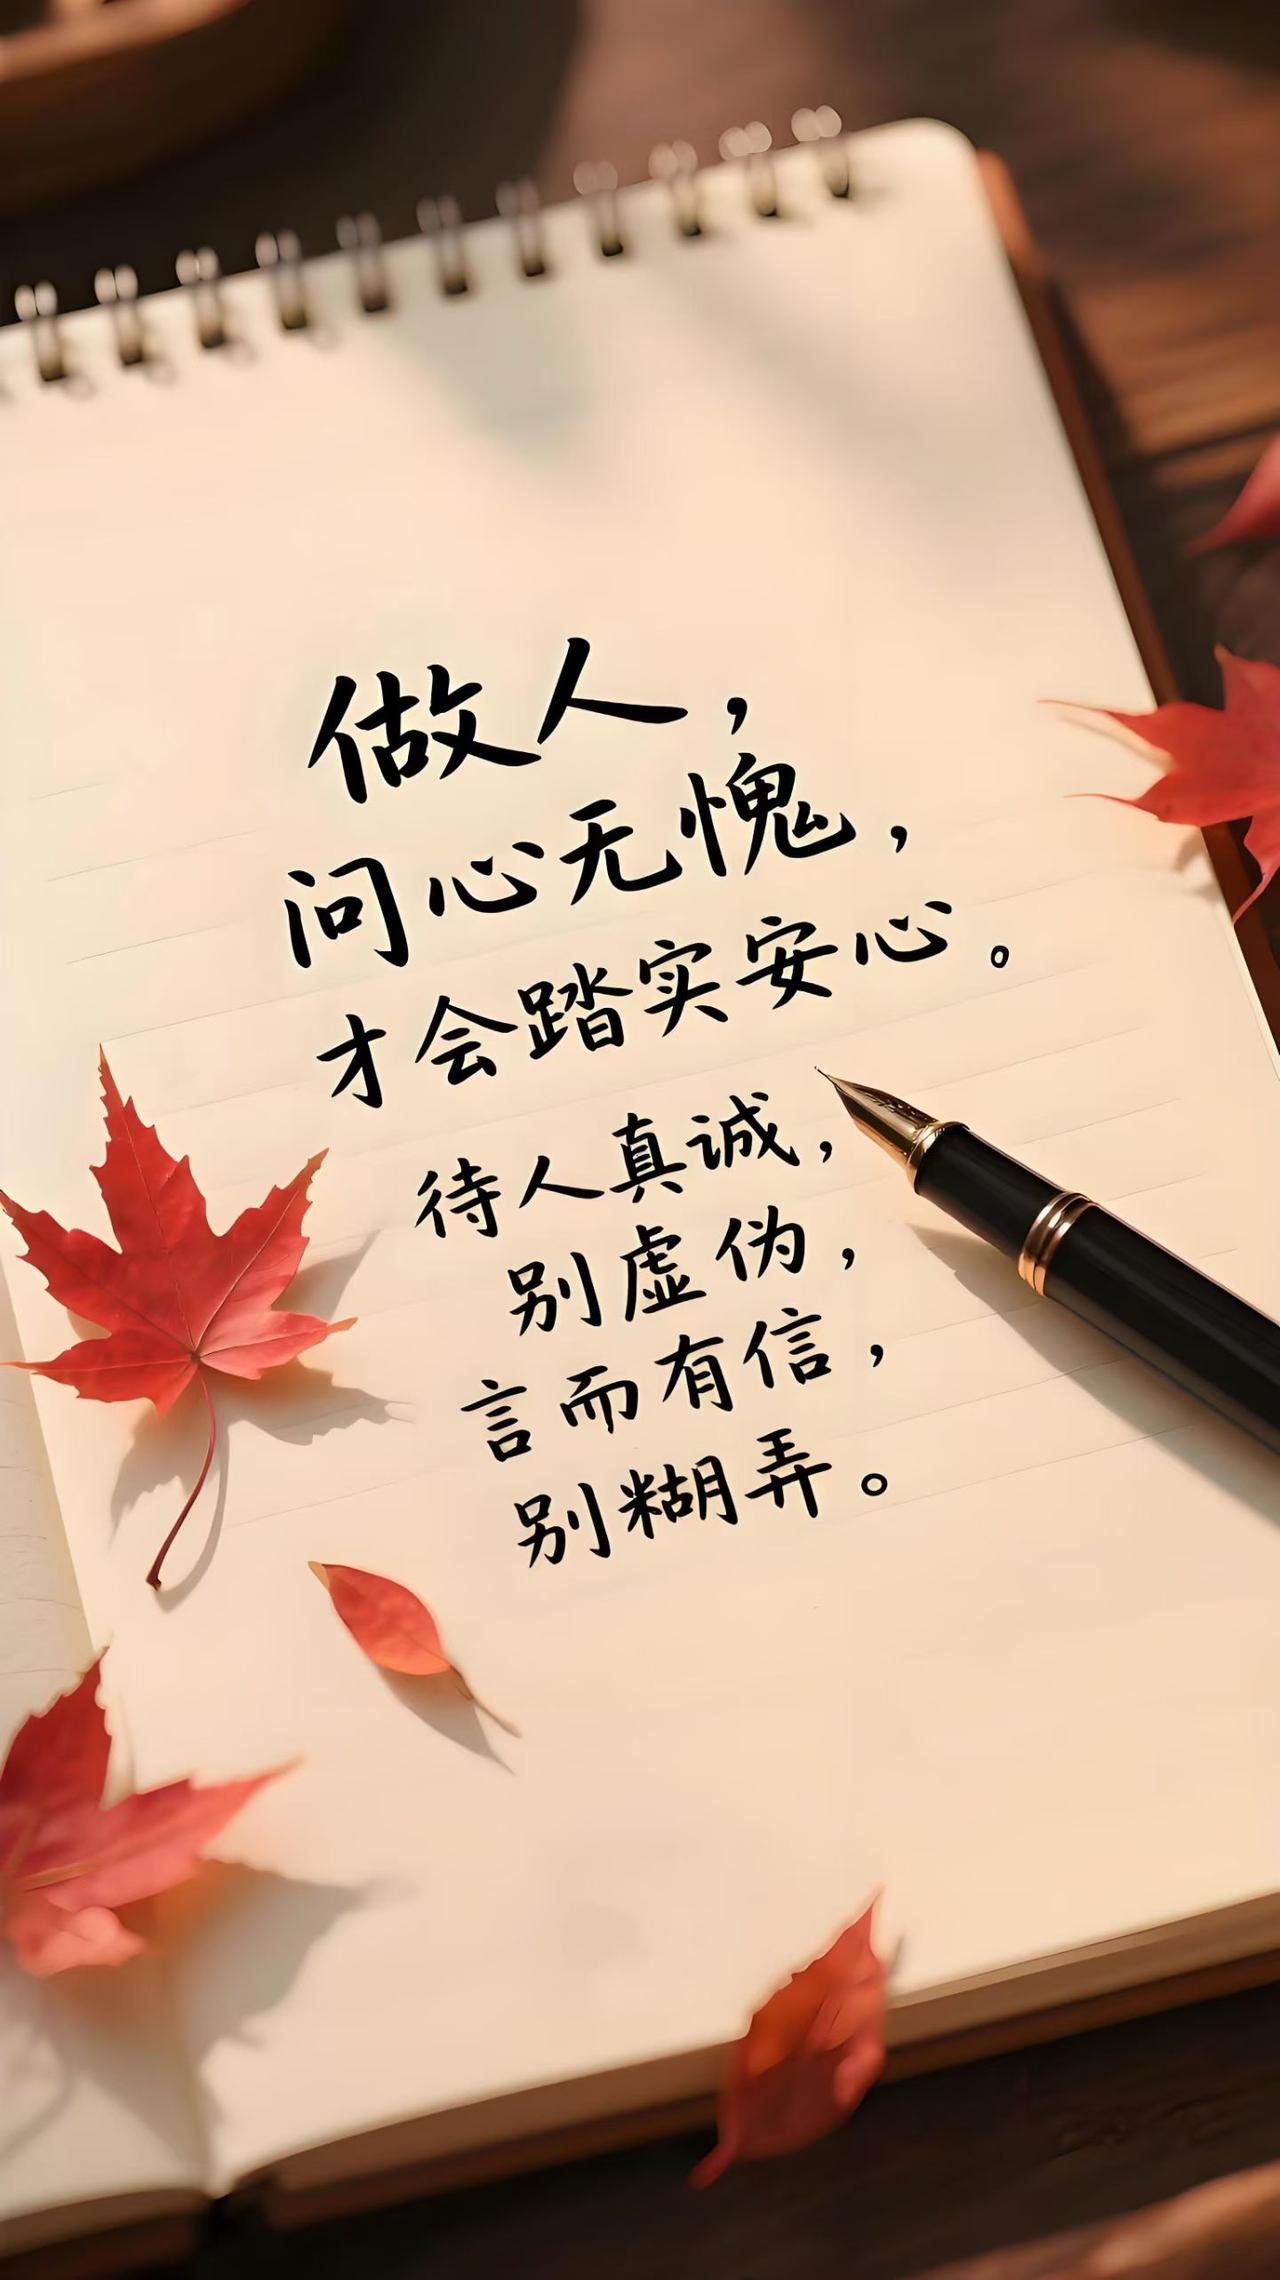 做人，
问心无愧，
才会踏实安心。
待人真诚，
别虚伪，
言而有信，
别糊弄。